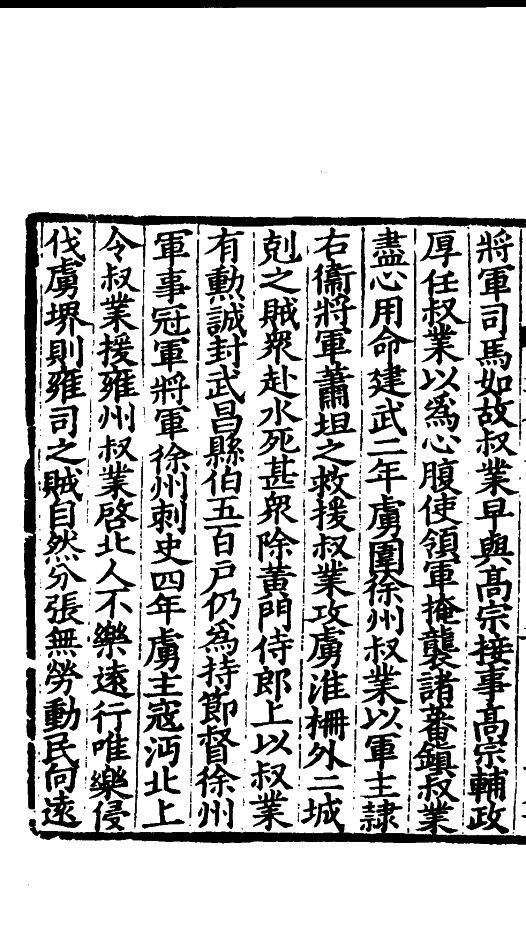 將軍司馬如故叔業早與高宗接事高宗輔政
厚任叔業以爲心腹使領軍掩襲諸蕃鎮叔業
盡心用命建武二年虜圍徐州叔業以軍主隷
右衞將軍蕭坦之救援叔業攻虜淮柵外二城
剋之賊衆赴水死甚衆除黃門侍郎上以叔業
有勲誠封武昌縣伯五百戶仍爲持節督徐州
軍事冠軍將軍徐州刺史四年虜主寇沔北上
令叔業援雍州叔業啓北人不樂遠行唯樂侵
伐虜堺則雍司之賊自然分張無勞動民向遠